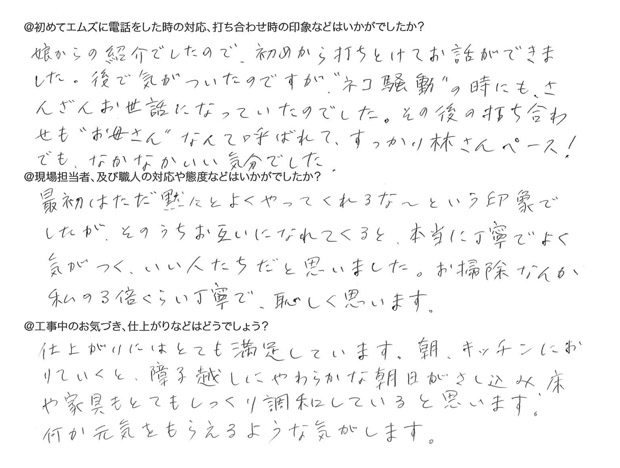 @初めてエムズに電話をした時の対応、打ち合わせ時の印象などはいかがでしたか?
娘からの紹介でしたので、初めから打ちとけてお話ができま
した。後で気がついたのですが、"ネコ騒動"の時にも、さ
んざんお世話になっていたのでした。その後の打ち合わ
せも"お母さん"なんて呼ばれて、すっかり林さんペース!
でも、なかなかいい気分でした。
@現場担当者、及び職人の対応や態度などはいかがでしたか?
最初はただ黙々とよくやってくれるな～という印象で
したが、そのうちお互いになれてくると、本当に丁寧でよく
気がつく、いい人たちだと思いました。お掃除なんか
私の3倍ぐらい丁寧で、恥しく思います。
@工事中のお気づき、仕上がりなどはどうでしょう?
仕上がりにはとても満足しています。朝、キッチンにお
りていくと、障子越しにやわらかな朝日がさし込み、床
や家具もとてもしっくり調和していると思います。
何か元気をもらえるような気がします。